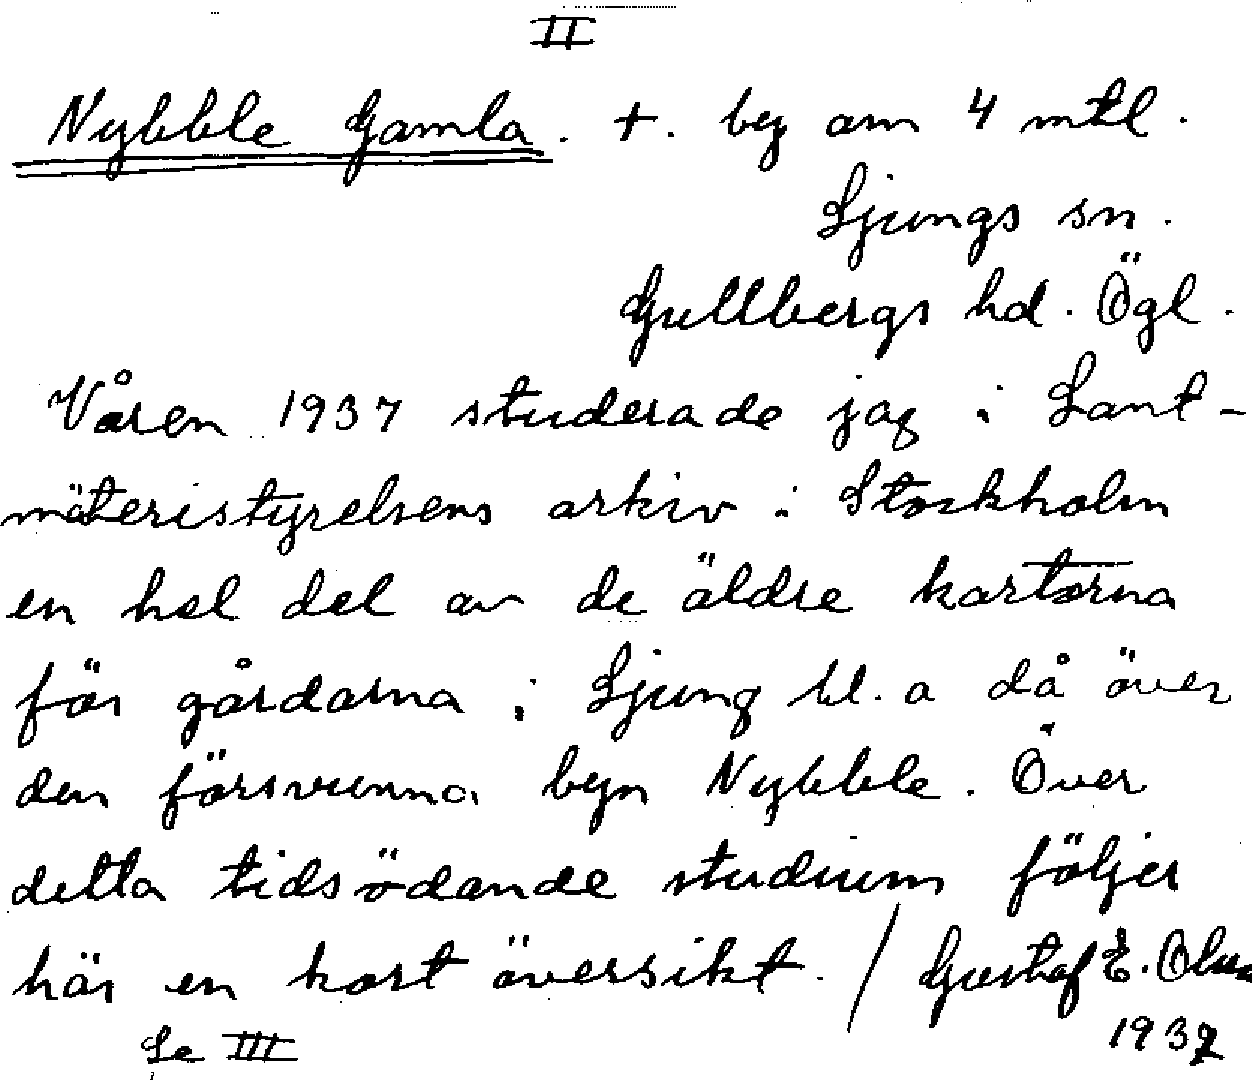 II
Nybble Gamla. +. by om 4 mtl.
Ljungs sn.
Gullbergs hd. Ögl.
Våren 1937 studerade jag i Lant-
mäteristyrelsens arkiv i Stockholm
en hel del av de äldre kartorna
för gårdarna i Ljung bl. a då över
den försvunna byn Nybble. Över
detta tidsödande studium följer
här en kort översikt. / Gustaf E. Olsson
1937
Se III